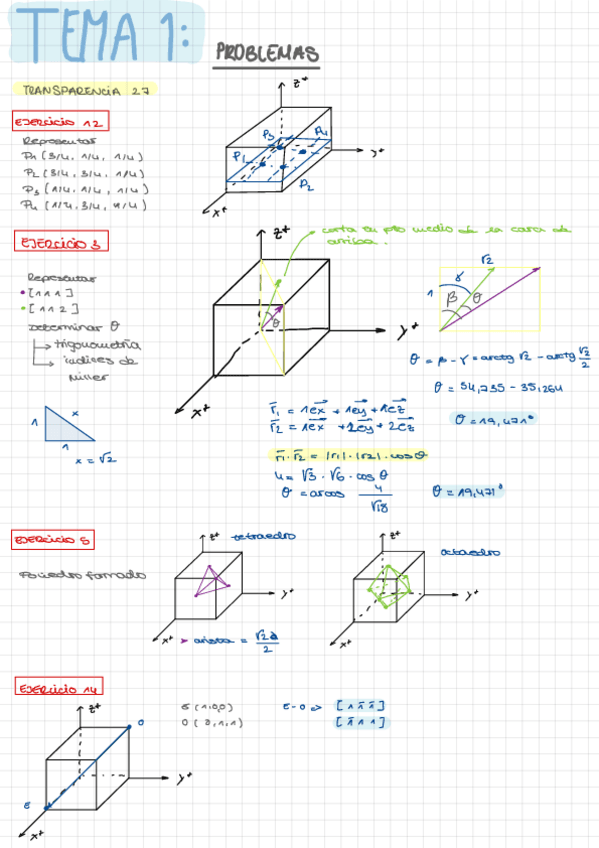 TEMA 1:
PROBLEMAS
TRANSPARENCIA 27
EJERCICIO 12
Representar
P1 (3/4, 1/4, 1/4)
P2 (3/4, 3/4, 1/4)
P3 (1/4, 1/4, 1/4)
P4 (1/4, 3/4, 1/4)
z+
P3
P4
P1
y+
P2
x+
EJERCICIO 3
Representar
• [1 1 1]
• [1 1 2]
Determinar θ
trigonometría
índices de
Miller
z+
corta su pto medio de la cara de
arriba.
θ
y+
x+
√2
1
γ
β
θ
θ = β - γ = arctg √2 - arctg √2/2
θ = 54,735 - 35,264
θ = 19,471°
1
x
1
x = √2
r1 = 1ex + 1ey + 1ez
r2 = 1ex + 1ey + 2ez
r1 · r2 = |r1| · |r2| · cos θ
4 = √3 · √6 · cos θ
θ = arcos 4/√18
θ = 19,471°
EJERCICIO 5
Poliedro formado
z+
tetraedro
y+
x+
arista = √2a/2
z+
octaedro
y+
x+
EJERCICIO 14
z+
O
y+
E
x+
E (1,0,0)
O (0,1,1)
E-O => [1 1̄ 1̄]
[1̄ 1 1]